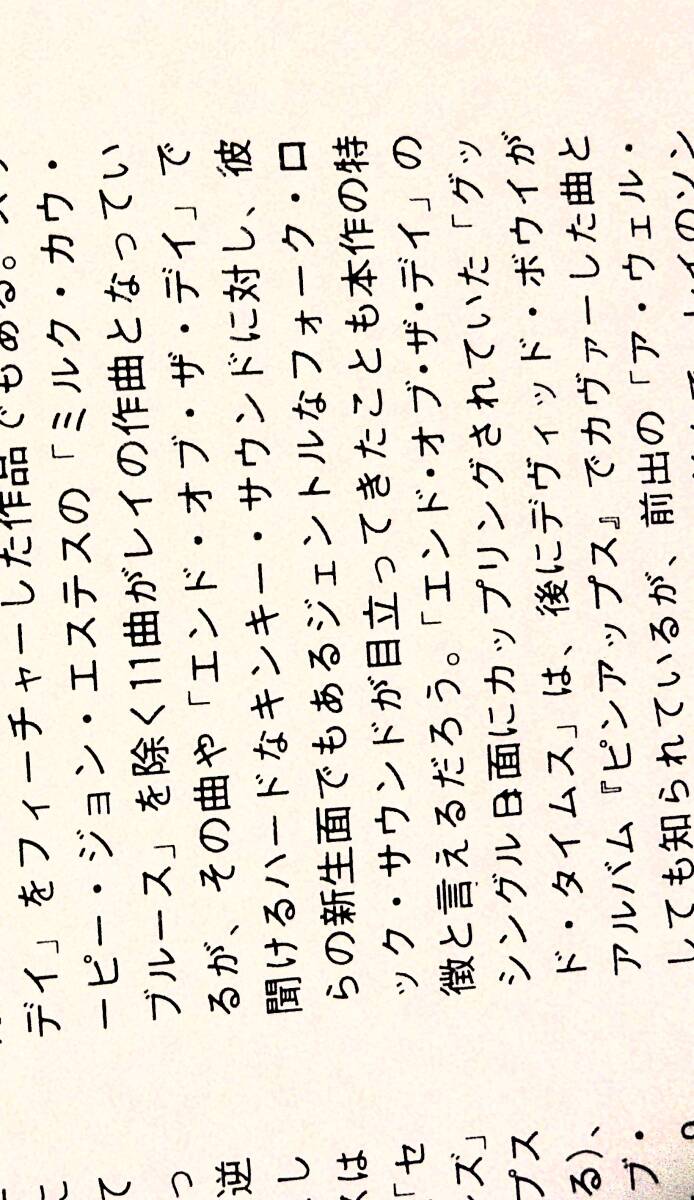 ディ」をフィーチャーした作品でもある。スリ
ーピー・ジョン・エステスの「ミルク・カウ・
ブルース」を除く11曲がレイの作曲となってい
るが、その曲や「エンド・オブ・ザ・デイ」で
聞けるハードなキンキー・サウンドに対し、彼
らの新生面でもあるジェントルなフォーク・ロ
ック・サウンドが目立ってきたことも本作の特
徴と言えるだろう。「エンド・オブ・ザ・デイ」の
シングルB面にカップリングされていた「グッ
ド・タイムス」は、後にデヴィッド・ボウイが
アルバム『ピンアップス』でカヴァーした曲と
しても知られているが、前出の「ア・ウェル・
て
っ
逆
し
は
「セ
ズ」
プス
る)、
ブ・